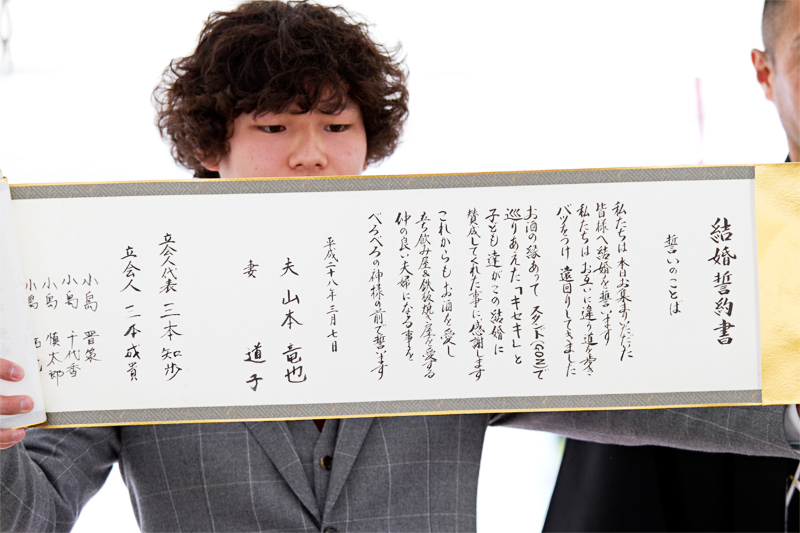 結婚誓約書
誓いのことは
私たちは本日お集まりいただいた
皆様へ結婚を誓います
私たちはお互いに違う道を歩き
バツをつけ 遠回りしてきました
お酒の縁あって スタンド(GON)で
巡りあえた「キセキ」と
子ども達がこの結婚に
賛成してくれた事に感謝します
これからも お酒を愛し
立ち飲み屋&鉄板焼き屋を愛する
仲の良い夫婦になる事を
べろべろの神様の前で誓います
平成二十八年三月七日
夫 山本 竜也
妻 道子
立会人代表 三本 知歩
立会人 二本 成賞
小島 晋策
小島 千代香
小島 慎太郎
小島